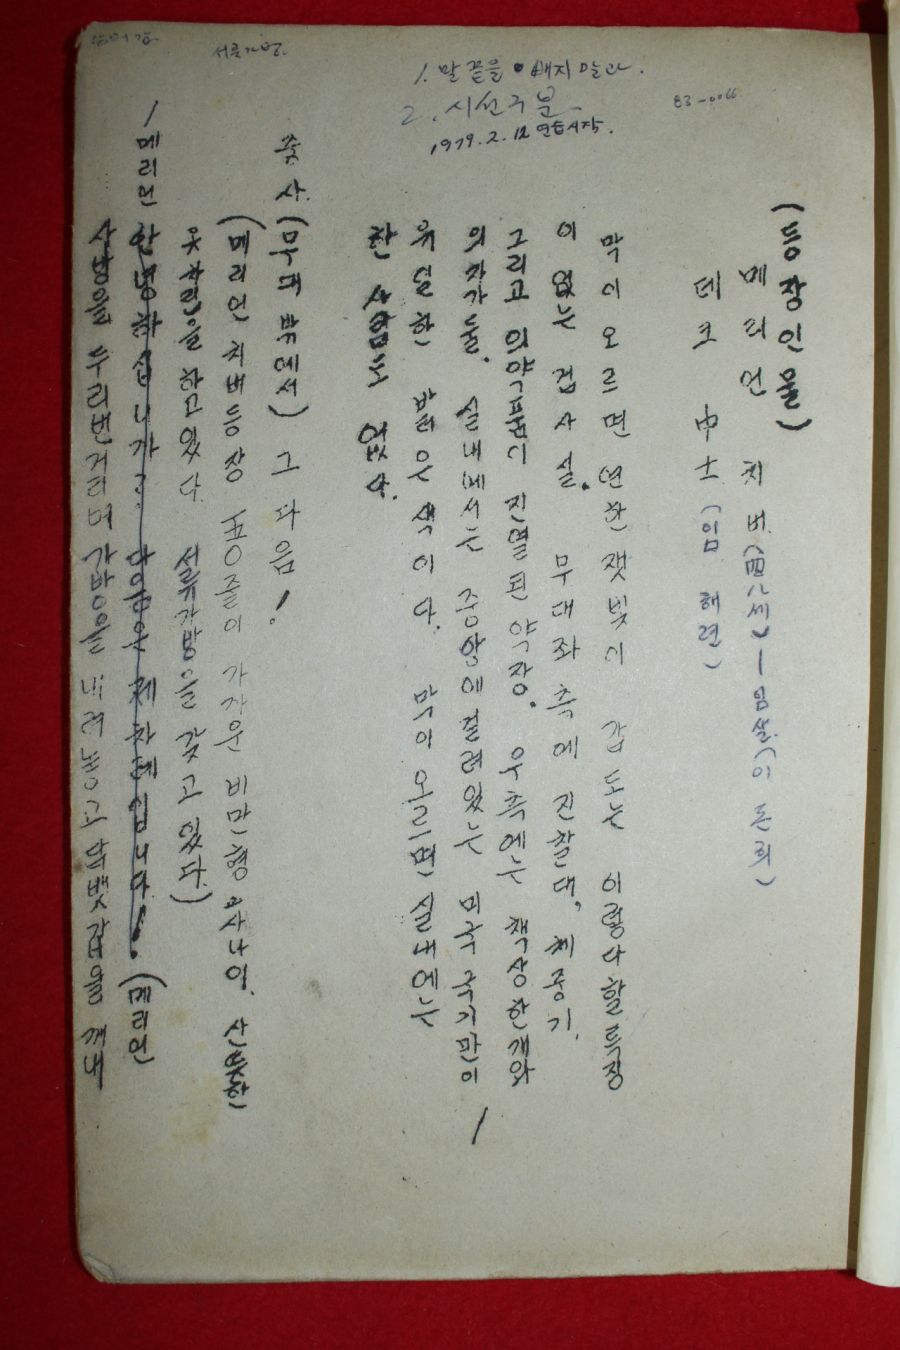 서류가방.
1. 말끝을 빼지 말라.
2. 시선구분
1979. 2. 12 연습시작.
83-0066
(등장인물)
메리언 치버 (四八세) ー 임 (이 돈희)
데크 中士 (임 해련)
막이 오르면 연한 잿빛이 감도는 이렇다할 특징
이 없는 검사실. 무대좌측에 진찰대, 체중기,
그리고 의약품이 진열된 약장. 우측에는 책상한개와
의자가둘. 실내에서는 중앙에 걸려있는 미국 국기만이
유일한 밝은 색이다. 막이 오르면 실내에는
한 사람도 없다.
중사. (무대 밖에서) 그 다음!
(메리언 치버등장 五〇줄이 가까운 비만형 사나이. 산뜻한
옷차림을 하고있다 서류가방을 갖고 있다)
메리언 안녕하십니까? 다음은 제차례입니다! (메리언
사방을 두리번거리며 가방을 내려놓고 담뱃갑을 꺼내